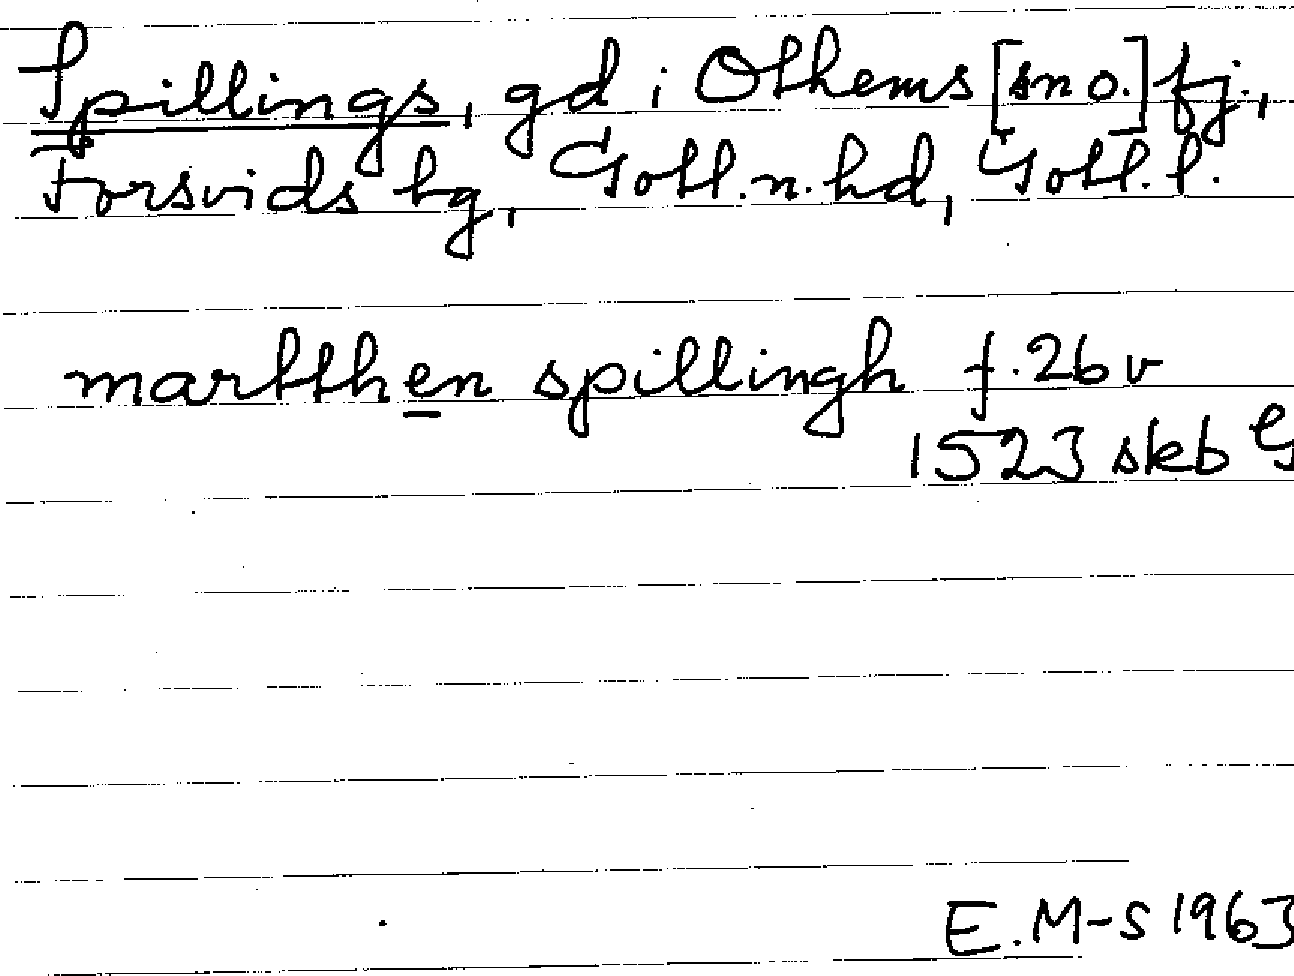 Spillings, gd i Othems [sn o.] fj.,
Forsvids tg, Gotl. n. hd, Gotl. l.
martthen spillingh f. 26 v
1523 skb G
E. M-S 1963